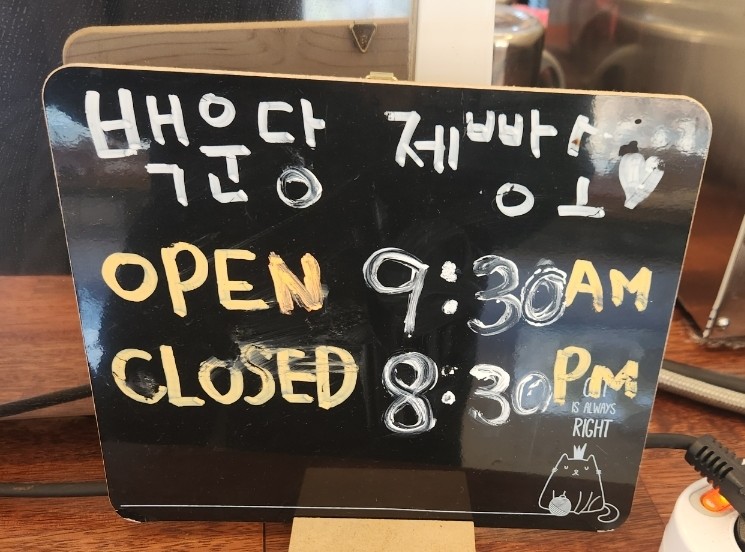 백운당 제빵소
OPEN 9:30 AM
CLOSED 8:30 PM
IS ALWAYS
RIGHT